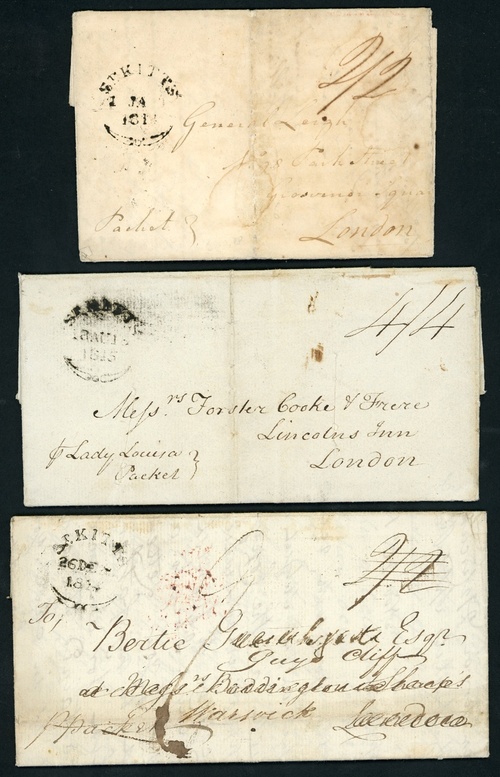 ST KITTS
JA
181
2/2
General Leigh
Park Street
Grosvenor Squa
Packet
London
ST KITTS
18AU
1815
4/4
Messrs Forster Cooke & Frere
Lincolns Inn
London
Lady Louisa
Packet
ST KITTS
26DE
18
2/2
To,
Bertie Greatheed Esqr
Guys Cliff
at Messrs Boddington & Sharps
Warwick
London
p packet